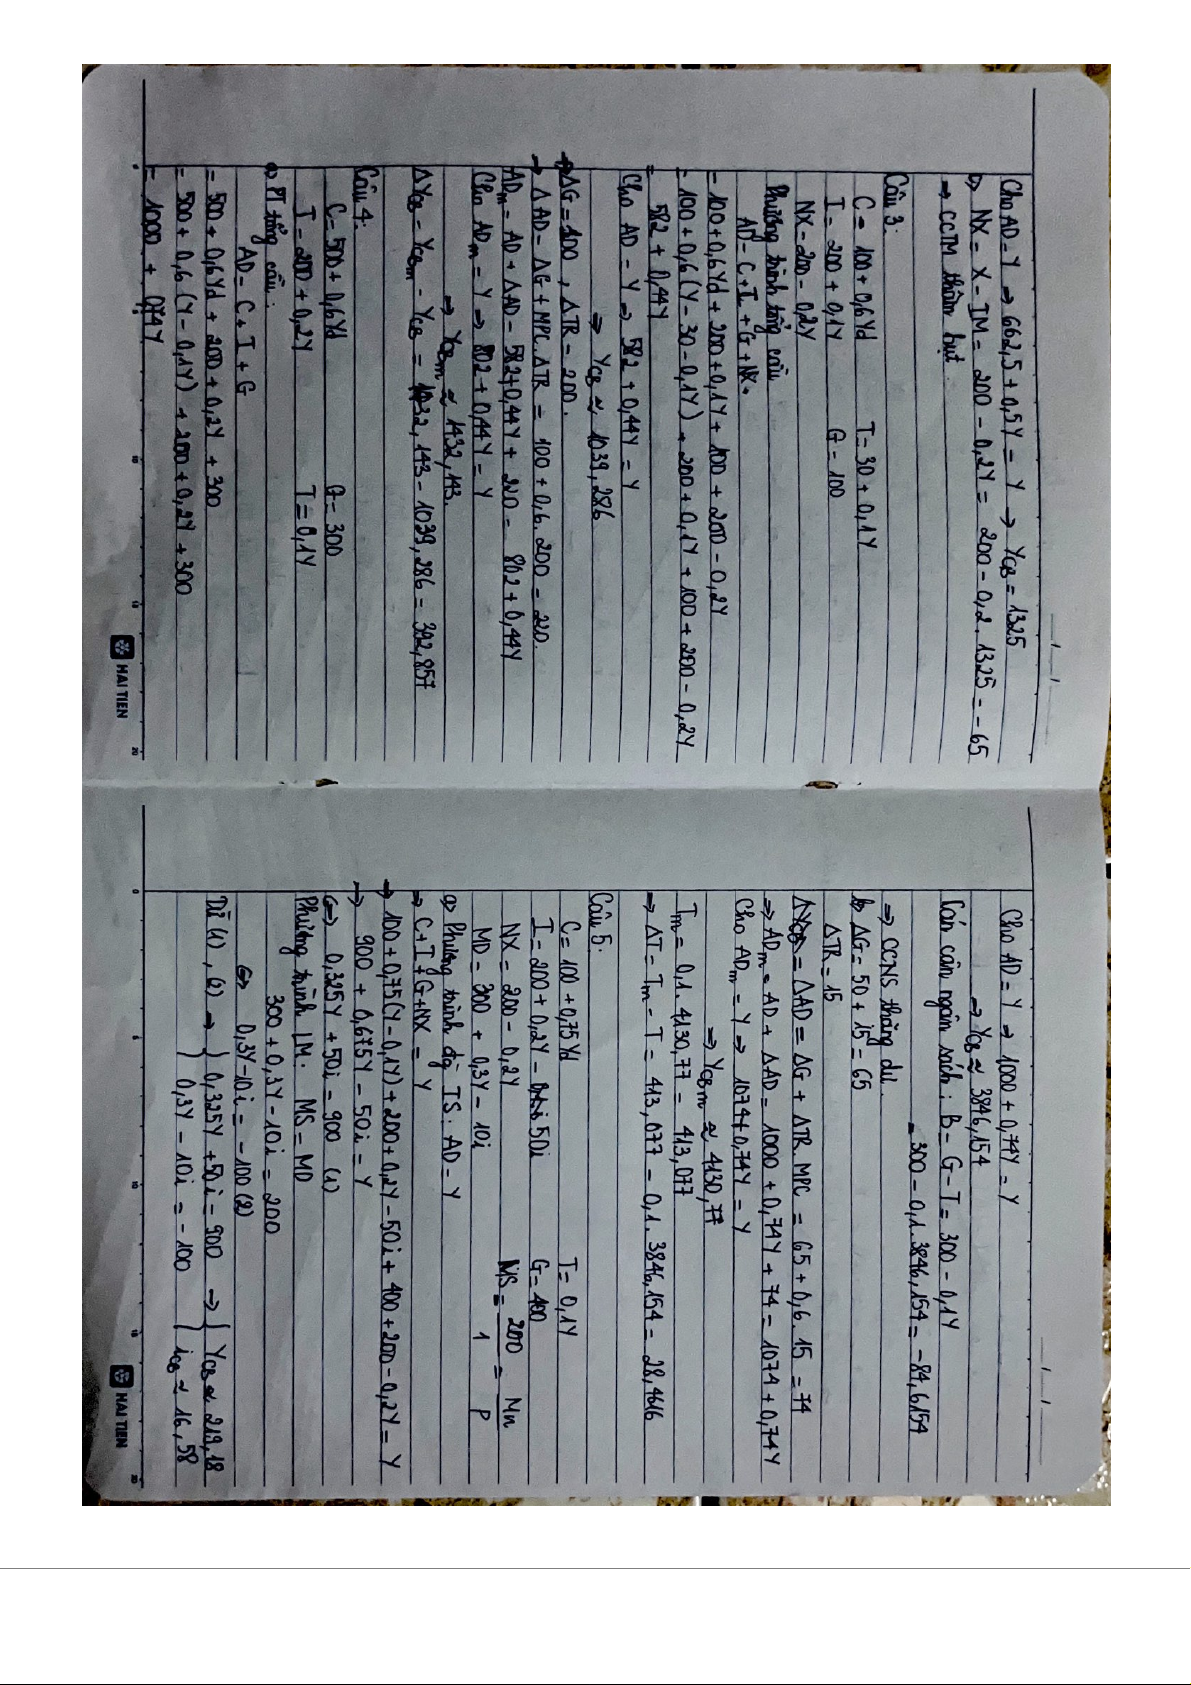 Cho AD = Y ⇒ 662,5 + 0,5Y = Y → Y_CB = 1325
b) NX = X - IM = 200 - 0,2Y = 200 - 0,2. 1325 = -65
⇒ CCTM thâm hụt.
Câu 3:
C = 100 + 0,6Yd T = 30 + 0,1Y
I = 200 + 0,1Y G = 100
NX = 200 - 0,2Y
Phương trình tổng cầu
AD = C + I + G + NX
= 100 + 0,6Yd + 200 + 0,1Y + 100 + 200 - 0,2Y
= 100 + 0,6 (Y - 30 - 0,1Y) + 200 + 0,1Y + 100 + 200 - 0,2Y
= 582 + 0,44Y
Cho AD = Y ⇒ 582 + 0,44Y = Y
⇒ Y_CB ≈ 1039,286
ΔG = 100, ΔTR = 200.
⇒ ΔAD = ΔG + MPC. ΔTR = 100 + 0,6. 200 = 220.
AD_m = AD + ΔAD = 582 + 0,44Y + 220 = 802 + 0,44Y
Cho AD_m = Y ⇒ 802 + 0,44Y = Y
⇒ Y_CBm ≈ 1432,143.
ΔY_CB = Y_CBm - Y_CB = 1432,143 - 1039,286 = 392,857
Câu 4:
C = 500 + 0,6Yd G = 300
I = 200 + 0,2Y T = 0,1Y
a) PT tổng cầu:
AD = C + I + G
= 500 + 0,6Yd + 200 + 0,2Y + 300
= 500 + 0,6 (Y - 0,1Y) + 200 + 0,2Y + 300
= 1000 + 0,74Y
HAI TIEN
Cho AD = Y ⇒ 1000 + 0,74Y = Y
⇒ Y_CB ≈ 3846,154
Cán cân ngân sách: B = G - T = 300 - 0,1Y
= 300 - 0,1. 3846,154 = -84,6154
⇒ CCNS thặng dư.
b, ΔG = 50 + 15 = 65
ΔTR = 15
= ΔAD = ΔG + ΔTR. MPC = 65 + 0,6. 15 = 74
⇒ AD_m = AD + ΔAD = 1000 + 0,74Y + 74 = 1074 + 0,74Y
Cho AD_m = Y ⇒ 1074 + 0,74Y = Y
⇒ Y_CBm ≈ 4130,77
T_m = 0,1. 4130,77 = 413,077
⇒ ΔT = T_m - T = 413,077 - 0,1. 3846,154 = 28,4616
Câu 5:
C = 100 + 0,75Yd T = 0,1Y
I = 200 + 0,2Y - 50i G = 400
NX = 200 - 0,2Y MS = 200/1 = Mn/P
MD = 300 + 0,3Y - 10i
a) Phương trình đg IS: AD = Y
⇒ C + I + G + NX = Y
⇒ 100 + 0,75(Y - 0,1Y) + 200 + 0,2Y - 50i + 400 + 200 - 0,2Y = Y
⇒ 900 + 0,675Y - 50i = Y
⇔ 0,325Y + 50i = 900 (1)
Phương trình LM: MS = MD
300 + 0,3Y - 10i = 200
⇔ 0,3Y - 10i = -100 (2)
Từ (1), (2) ⇒ { 0,325Y + 50i = 900 ⇒ { Y_CB ≈ 219,18
0,3Y - 10i = -100 i_CB ≈ 16,58
HAI TIEN